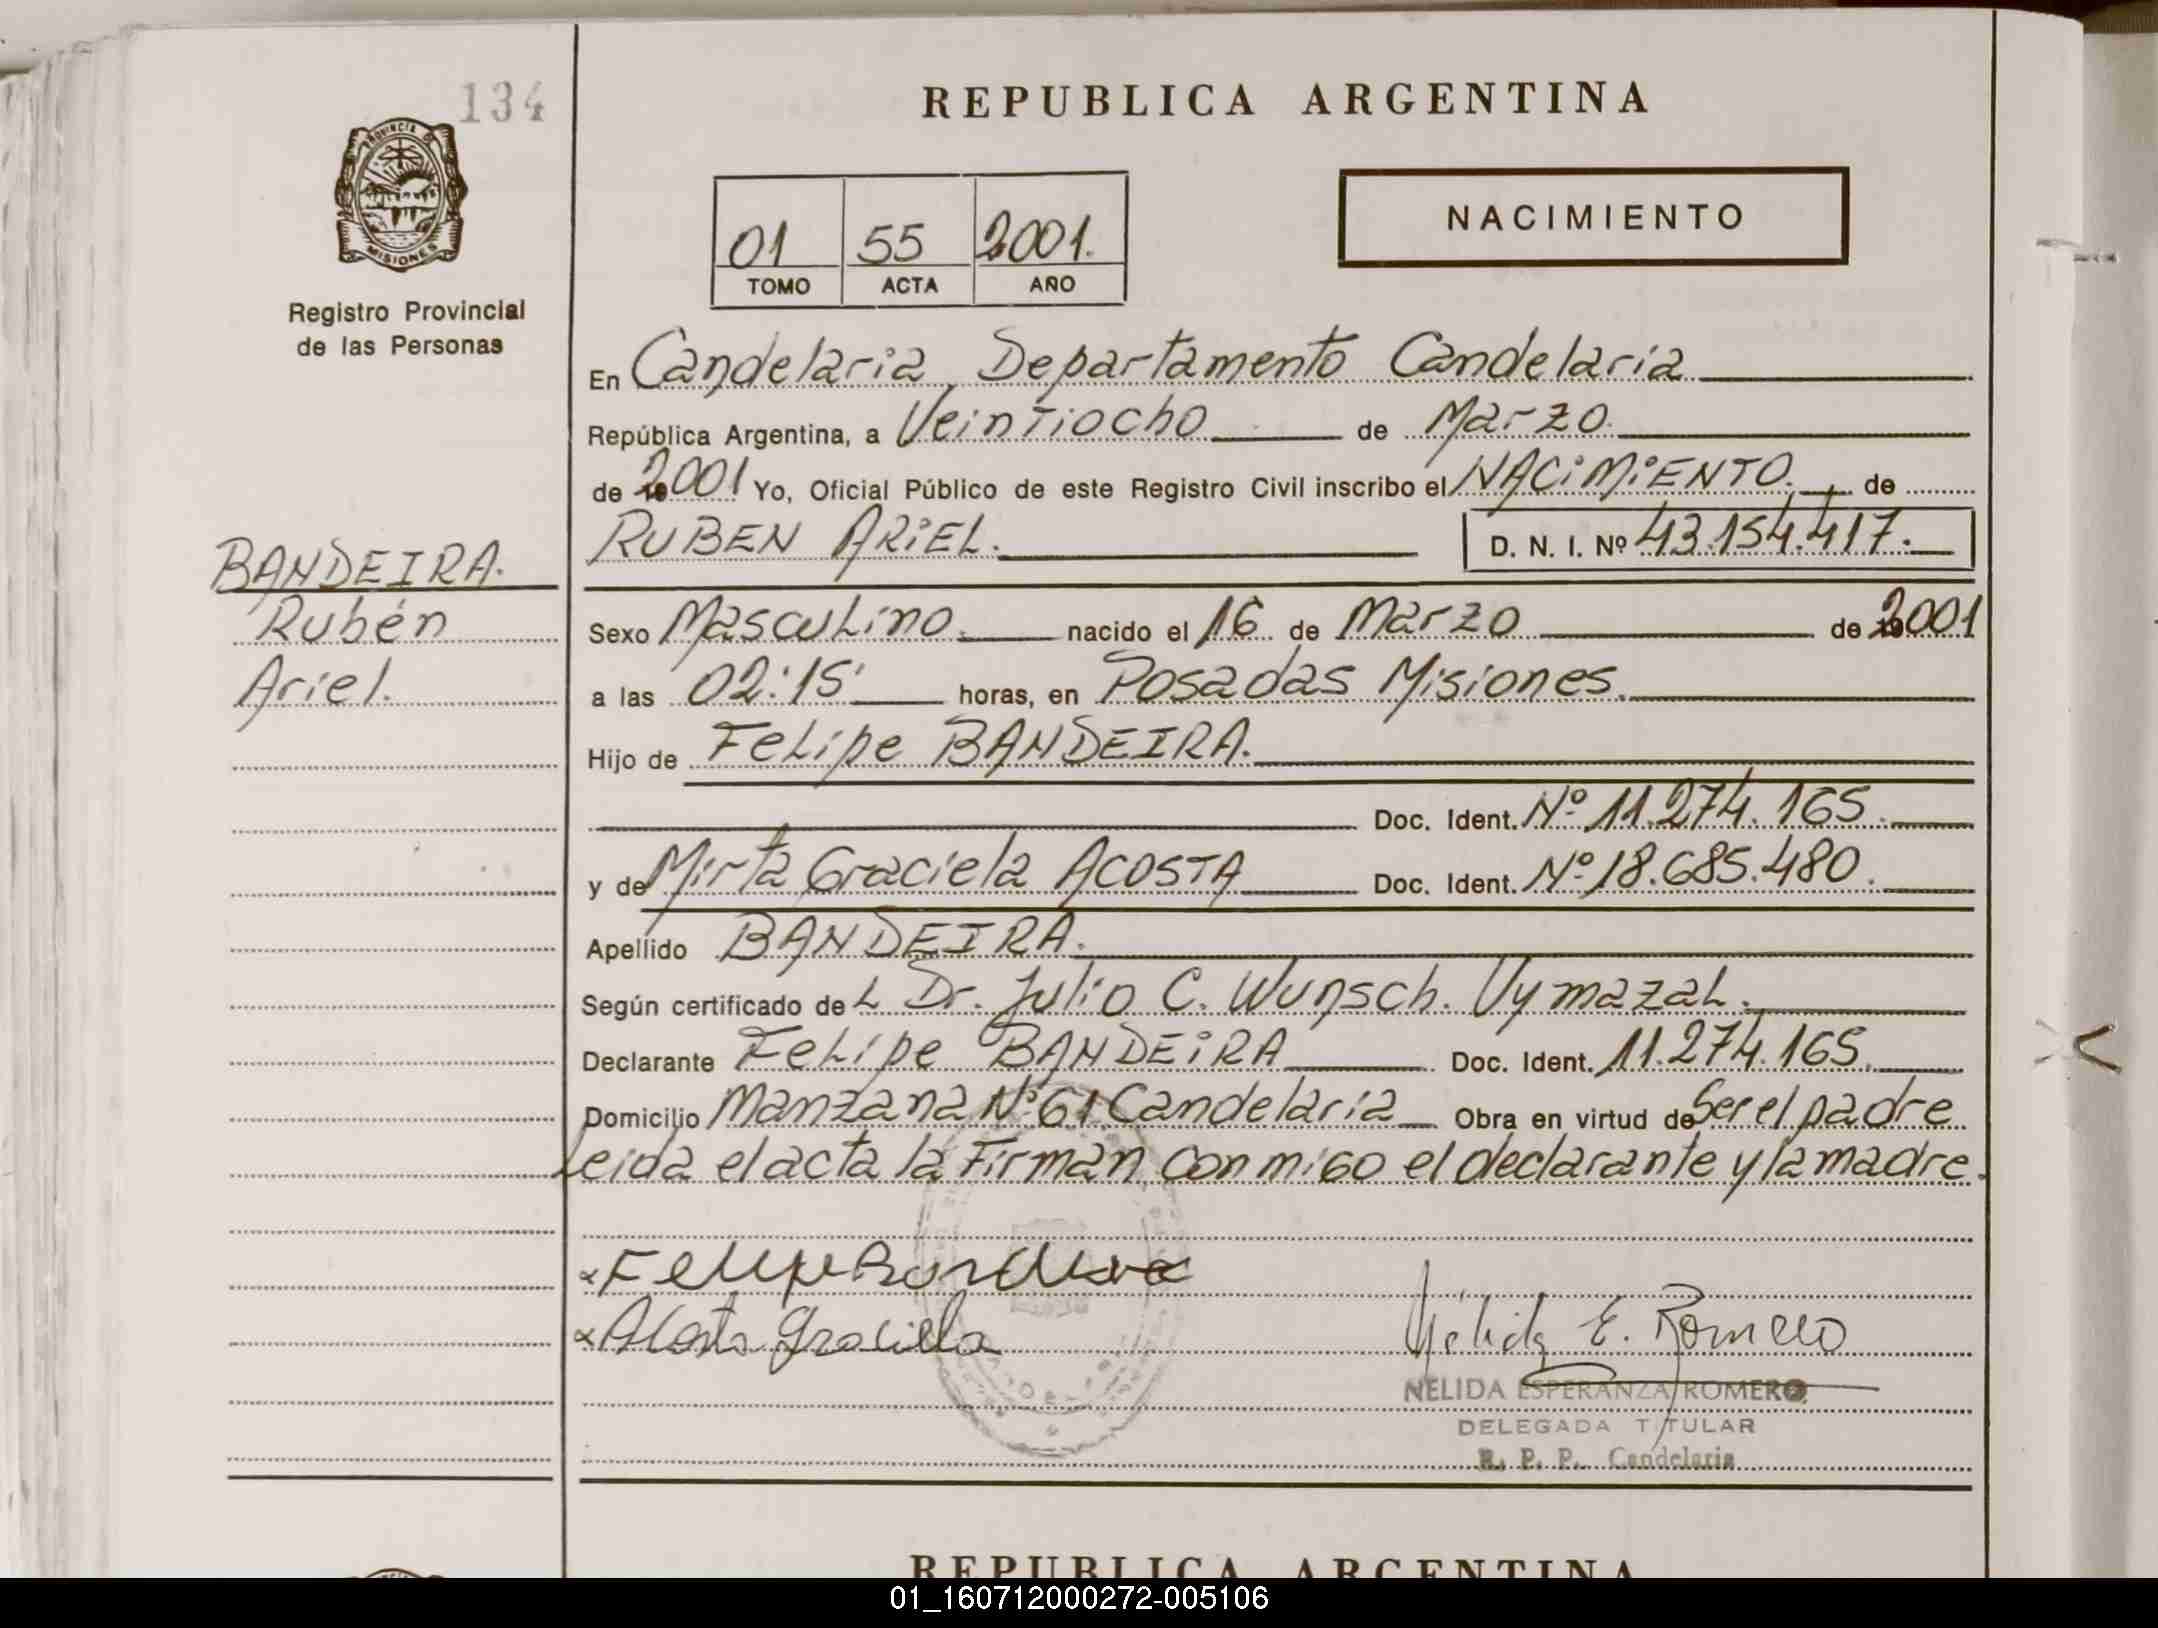 134
PROVINCIA DE
MISIONES
Registro Provincial
de las Personas
REPUBLICA ARGENTINA
01 55 2001.
TOMO ACTA AÑO
NACIMIENTO
En Candelaria, Departamento Candelaria
República Argentina, a Veintiocho de Marzo.
de 2001 Yo, Oficial Público de este Registro Civil inscribo el NACiMiENTO. de
RUBEN ARiEL. D. N. I. Nº 43.154.417.
BANDEIRA.
Rubén
Ariel.
Sexo Masculino. nacido el 16 de Marzo de 2001
a las 02:15' horas, en Posadas Misiones.
Hijo de Felipe BANDEIRA.
Doc. Ident. Nº 11.274.165.
y de Mirta Graciela ACOSTA Doc. Ident. Nº 18.685.480.
Apellido BANDEIRA.
Según certificado de L Dr. Julio C. Wunsch. Vymazal.
Declarante Felipe BANDEiRA Doc. Ident. 11.274.165.
Domicilio Manzana Nº 61 Candelaria Obra en virtud de Ser el padre
Leida el acta la Firman con migo el declarante y la madre.
x Felipe Bandeira
x Acosta Graciela
Nélida E. Romero
NELIDA ESPERANZA ROMERO
DELEGADA TITULAR
R. P. P. Candelaria
REPUBLICA ARGENTINA
01_160712000272-005106